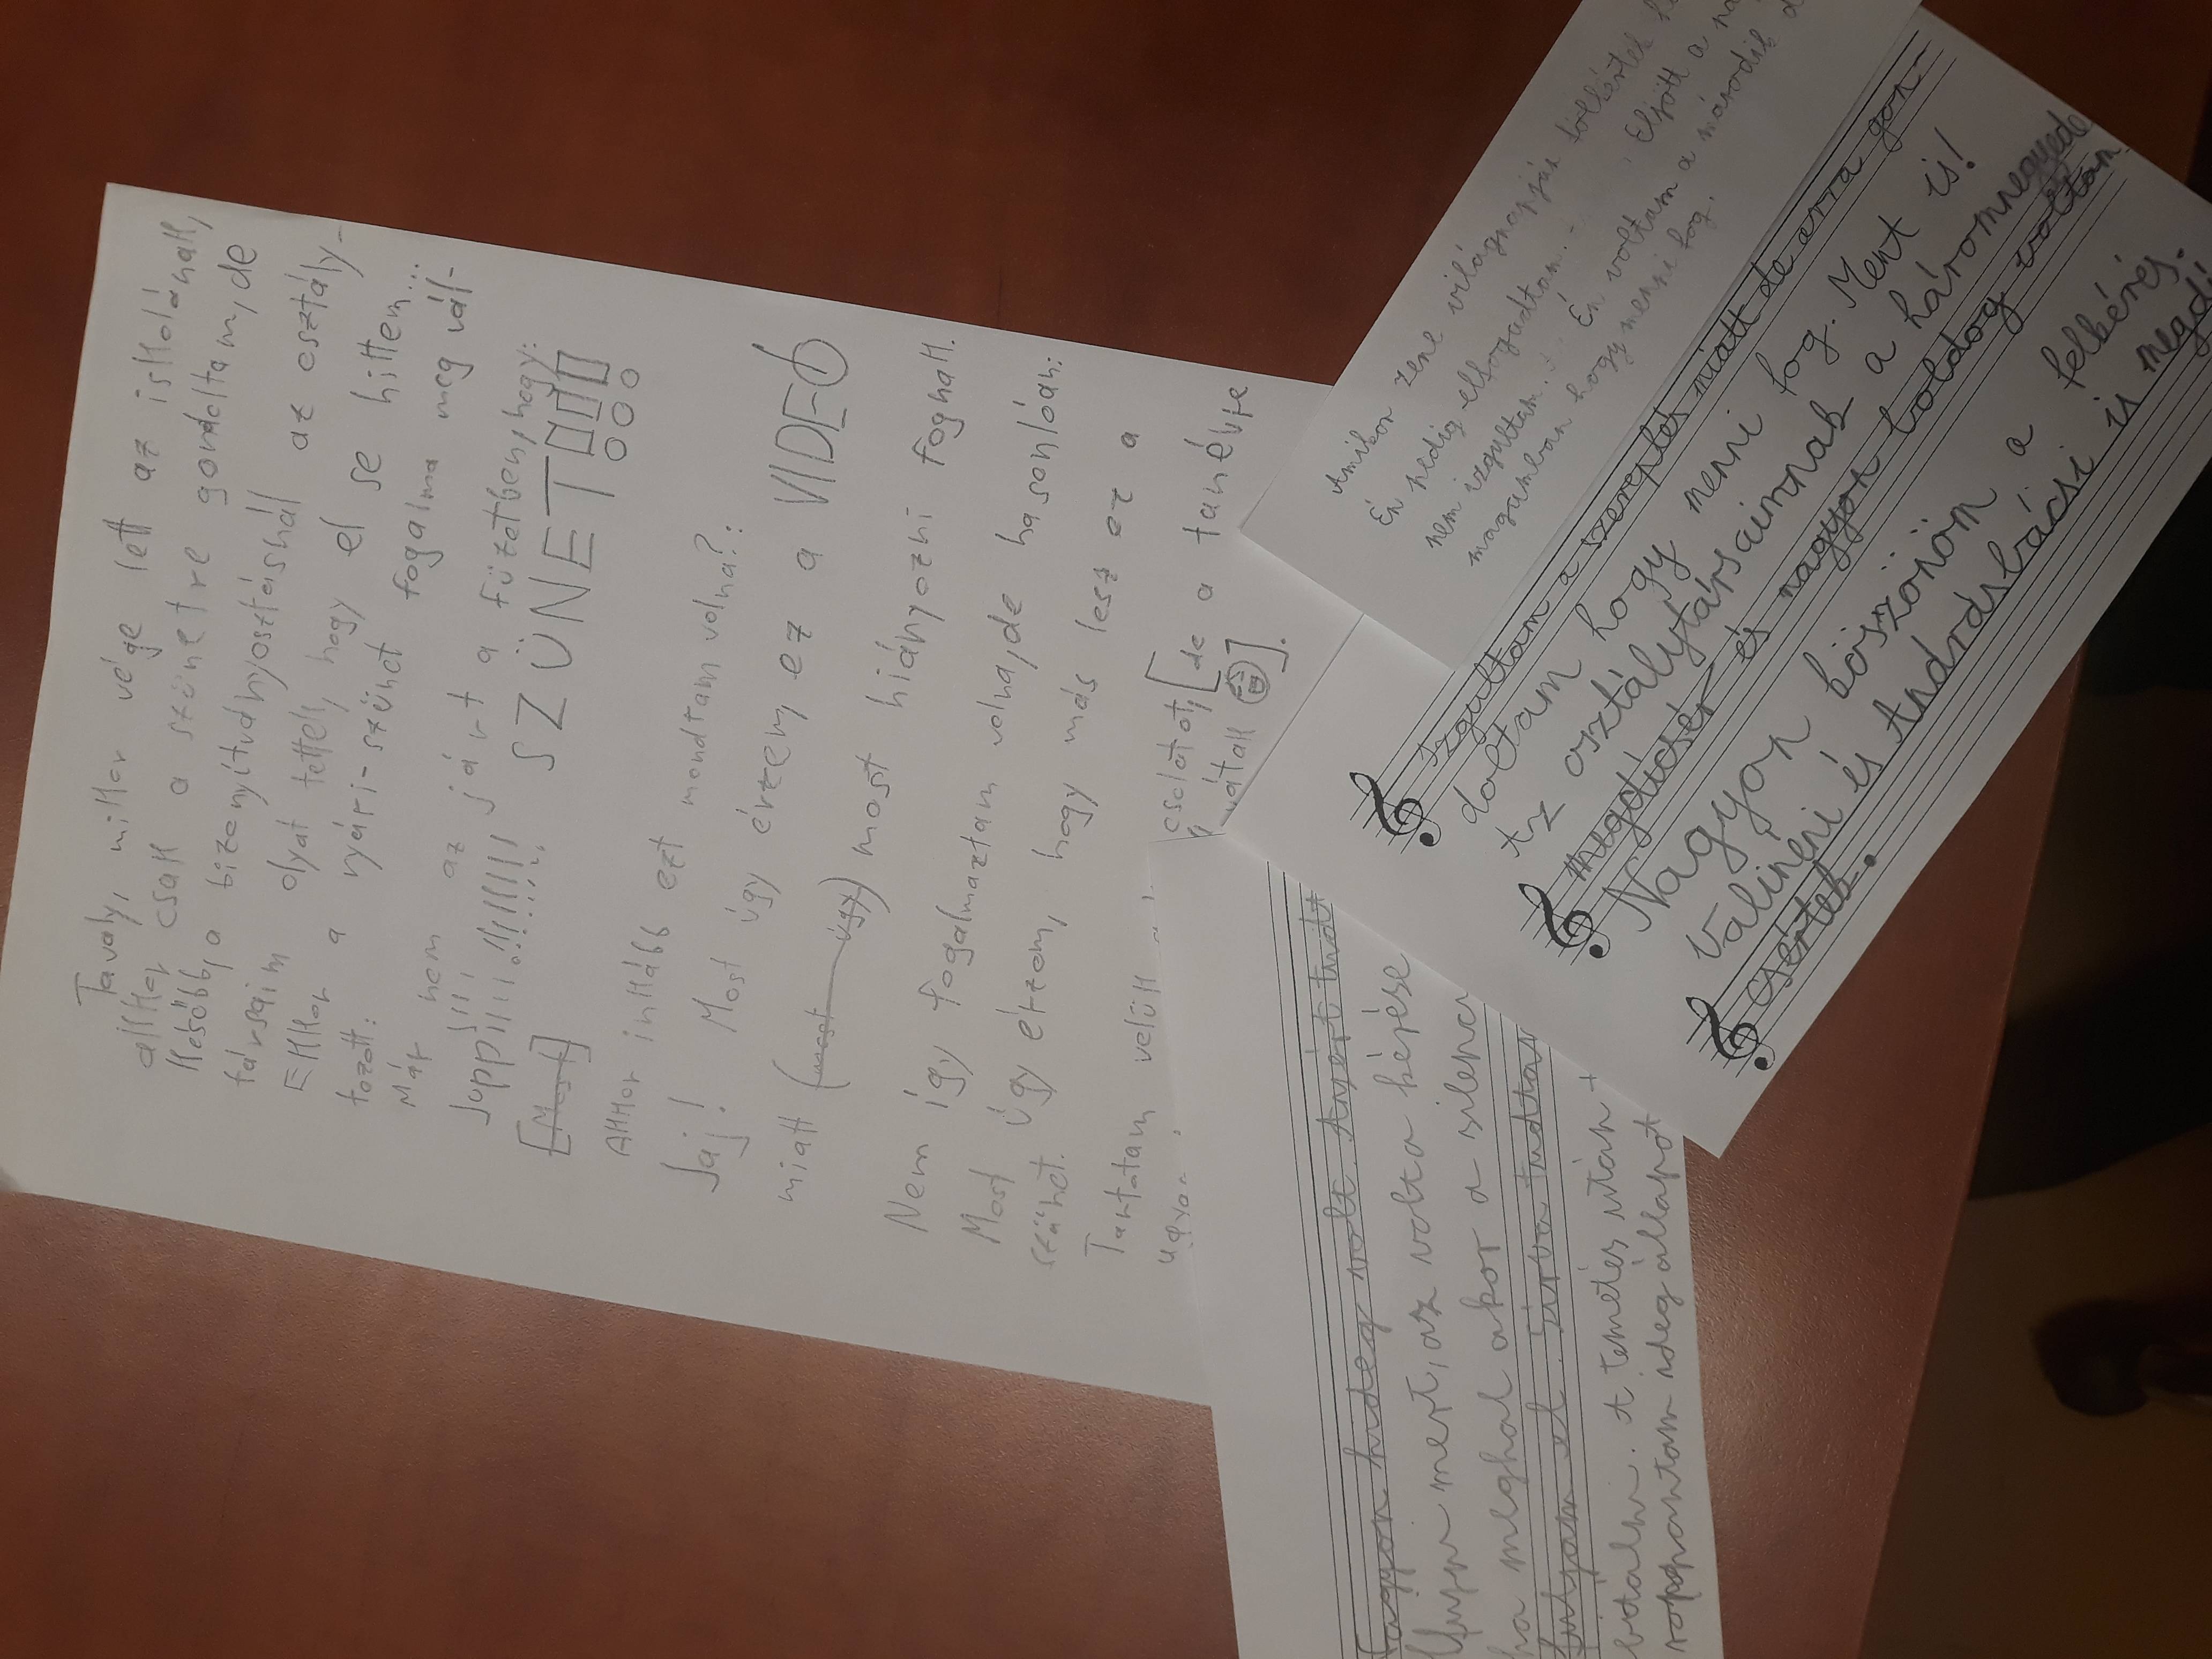 Tavaly, mikor vége lett az iskolának,
akkor csak a szünetre gondoltam, de
később, a bizonyítványosztásnál az osztály-
társaim olyat tettek, hogy el se hittem...
Ekkor a nyári-szünet fogalma meg vál-
tozott:
Már nem az járt a füzetben, hogy:
Juppiiii!!!!!!!! SZÜNET!!!
[Most]
Akkor inkább ezt mondtam volna?:
Jaj! Most úgy érzem, ez a VIDEÓ
miatt (most úgy) most hiányozni fognak.
Nem így fogalmaztam volna, de hasonlóan:
Most úgy érzem, hogy más lesz ez a
szünet.
Tartatam velük
csolatot, [de a tanévre
Amikor zene világnapján fölkértek
Én pedig elfogadtam. Eljött a
nem izgultam. Én voltam a második
magamban hogy menni fog.
Izgultam a szereplés miatt de arra gon-
doltam hogy menni fog. Ment is!
Az osztálytársaimnak a háromnegyede
megdícsér és nagyon boldog voltam.
Nagyon köszönöm a felkérés.
Valinéni és Andrásbácsi is megdí
csértek.
nagyon hideg volt. Azért tudt
mert, az volt a kérése
ha meghal akkor a zilenci
Sírva tudtam
A temetés után
roppantam ideg állapot